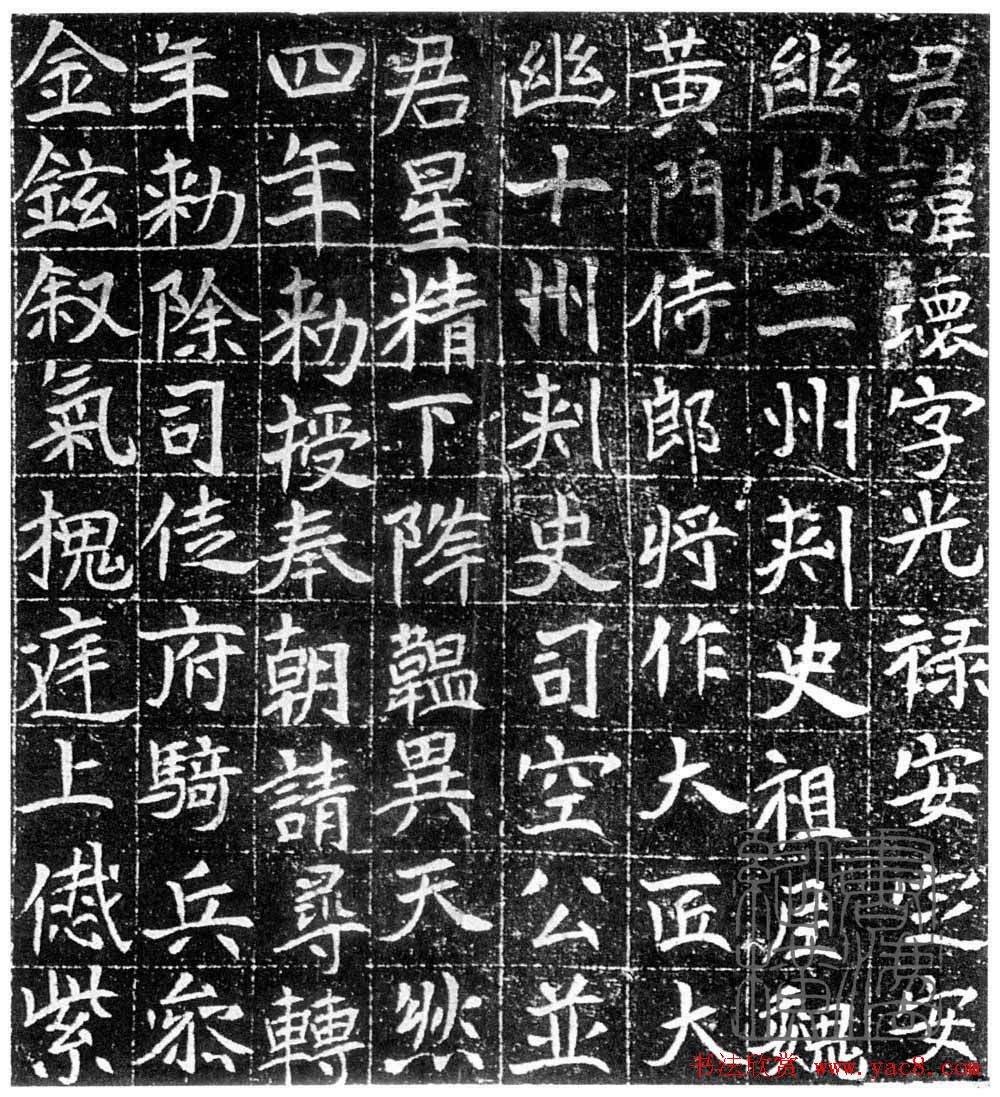 君諱壞字光祿安定安
幽岐二州刾史祖魏
黃門侍郎將作大匠大
幽十州刾史司空公並
君星精下降韞異天然
四年勑授奉朝請尋轉
年勑除司徒府騎兵叅
金鉉叙氣槐庭上紫
书法欣赏 www.yac8.com